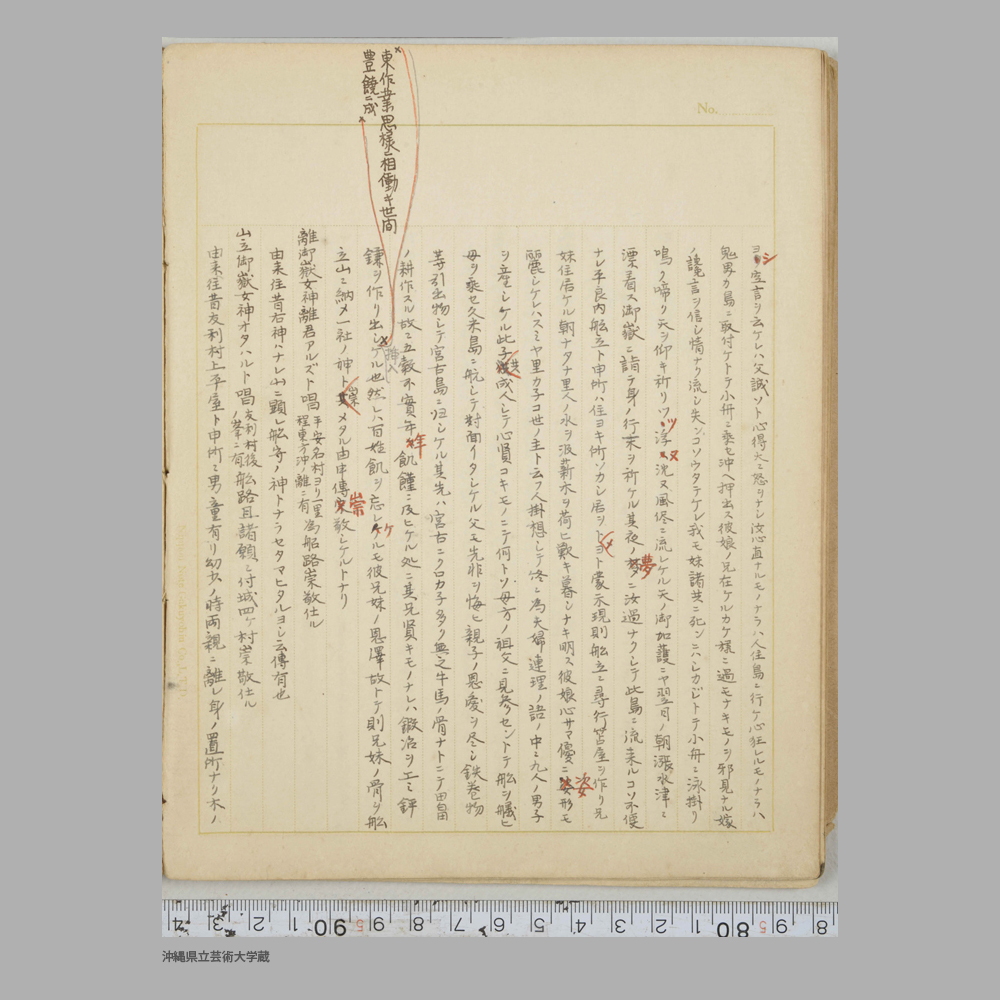 No.
東作業思様ニ相働キ世間
豊饒ニ成
ヨシ空言ヲ云ケレハ父誠ソト心得大ニ怒ヲナシ汝心直ナルモノナラハ人住島ニ行ケ心狂レルモノナラハ
鬼界カ島ニ取付ケトテ小舟ニ乗セ沖ヘ押出ス彼娘ノ兄在ケルカケ様ニ過モナキモノヲ邪見ナル嫁
ノ讒言ヲ信シ情ナク流シ失ンコソウタテケレ我モ妹諸共ニ死ンニハシカジトテ小舟ニ泳掛リ
鳴ク啼リ天ヲ仰キ祈リツヽ浮ヌ沈ヌ風侭ニ流レケル天ノ御加護ニヤ翌月ノ朝漲水津ニ
漂着ス御嶽ニ詣テ身ノ行末ヲ祈ケル其夜ノ夢ニ汝過ナクシテ此島ニ流来ルコソ不便
ナレ平良内船立ト申所ハ住ヨキ所ソカシ居ヲシメヨト蒙示現則船立ニ尋行苫屋ヲ作リ兄
妹住居ケル朝ナタナ里人ノ水ヲ汲薪木ヲ荷ヒ歎キ暮シナキ明ス彼娘心サマ優ニ姿形モ
麗シケレハスミヤ里カ子コ世ノ主ト云フ人掛想シテ終ニ為夫婦連理ノ語ノ中ニ九人ノ男子
ヲ産シケル此子共成人シテ心賢コキモノニテ何トソ母方ノ祖父ニ見参セントテ船ヲ艤ヒ
母ヲ乗セ久米島ニ航シテ対面イタシケル父モ先非ヲ悔ヒ親子ノ恩愛ヲ尽シ鉄巻物
等引出物シテ宮古島ニ归シケル其先ハ宮古ニクロカ子多ク無之牛馬ノ骨ナトニテ田畠
ノ耕作スル故ニ五穀不實年飢饉ニ及ヒケル処ニ其兄賢キモノナレハ鍛冶ヲ工ミ鉾
鎌ヲ作リ出シケル也然レハ百姓飢ヲ忘レケルモ彼兄妹ノ恩澤故トテ則兄妹ノ骨ヲ船
挿入
立山ニ納メ一社ノ神ト崇メタル由申傳崇敬シケルトナリ
離御嶽女神離君アルズト唱 平安名村ヨリ一里程東方沖ノ離ニ有 為船路崇敬仕ル
由来往昔右神ハナレ山ニ顕レ船守ノ神トナラセタマヒタルヨシ云傳有也
山立御嶽女神オタハルト唱 友利村後ノ峯ニ有 船路且諸願ニ付城四ケ村崇敬仕ル
由来往昔友利村上平屋ト申所ニ男童有リ幼少ノ時両親ニ離レ身ノ置所ナリ木ノ
沖縄県立芸術大学蔵